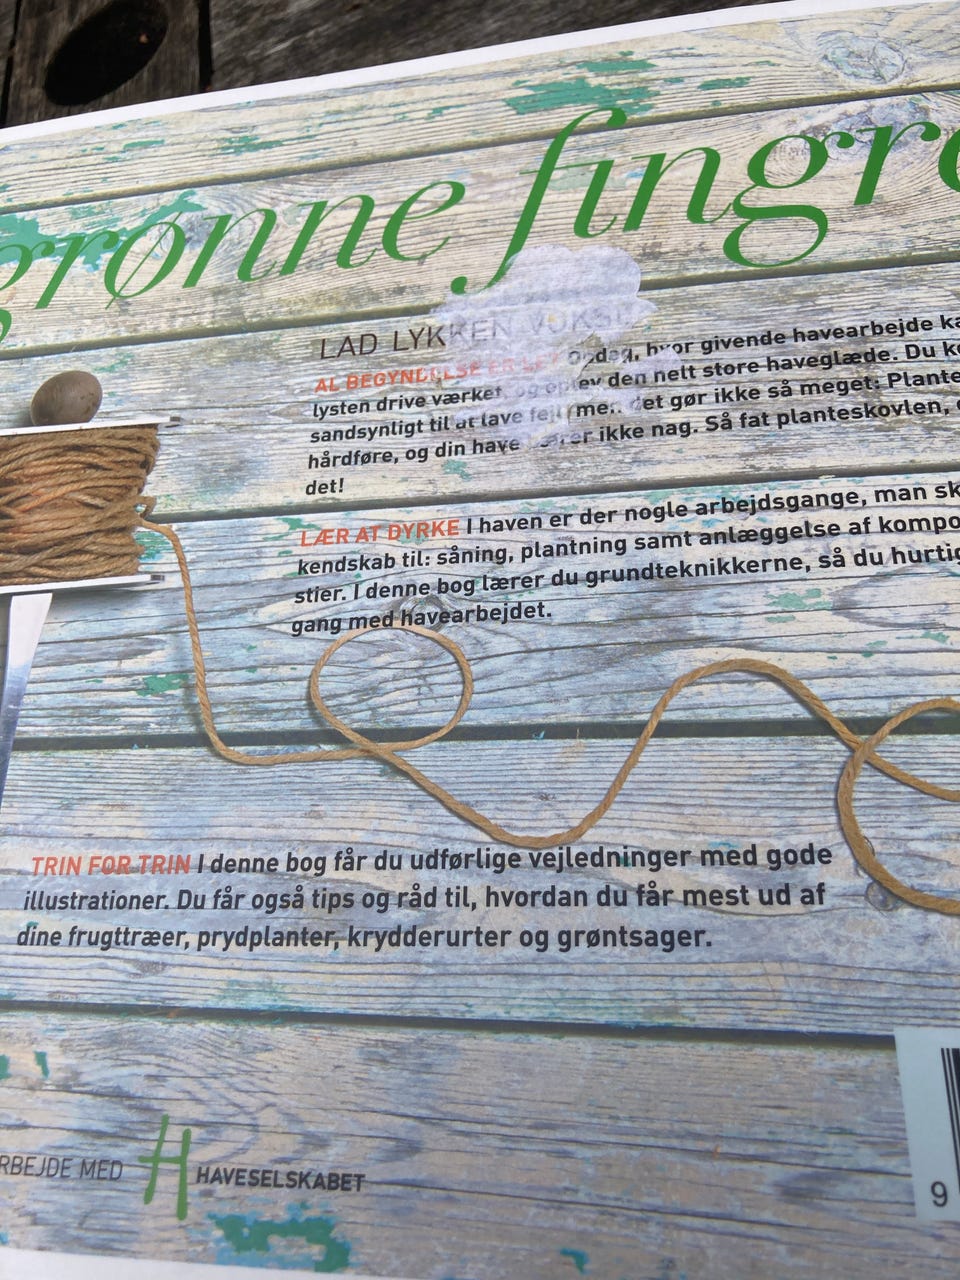 grønne fingre
LAD LYKKEN VOKSE
AL BEGYNDELSE ER LET hvor givende havearbejde
lysten drive værket, og oplev den helt store haveglæde. Du
sandsynligt til at lave fejl, men det gør ikke så meget:
hårdføre, og din have bærer ikke nag. Så fat planteskovlen,
det!
LÆR AT DYRKE I haven er der nogle arbejdsgange, man
kendskab til: såning, plantning samt anlæggelse af
stier. I denne bog lærer du grundteknikkerne, så du
gang med havearbejdet.
TRIN FOR TRIN I denne bog får du udførlige vejledninger med gode
illustrationer. Du får også tips og råd til, hvordan du får mest ud af
dine frugttræer, prydplanter, krydderurter og grøntsager.
RBEJDE MED HAVESELSKABET
9